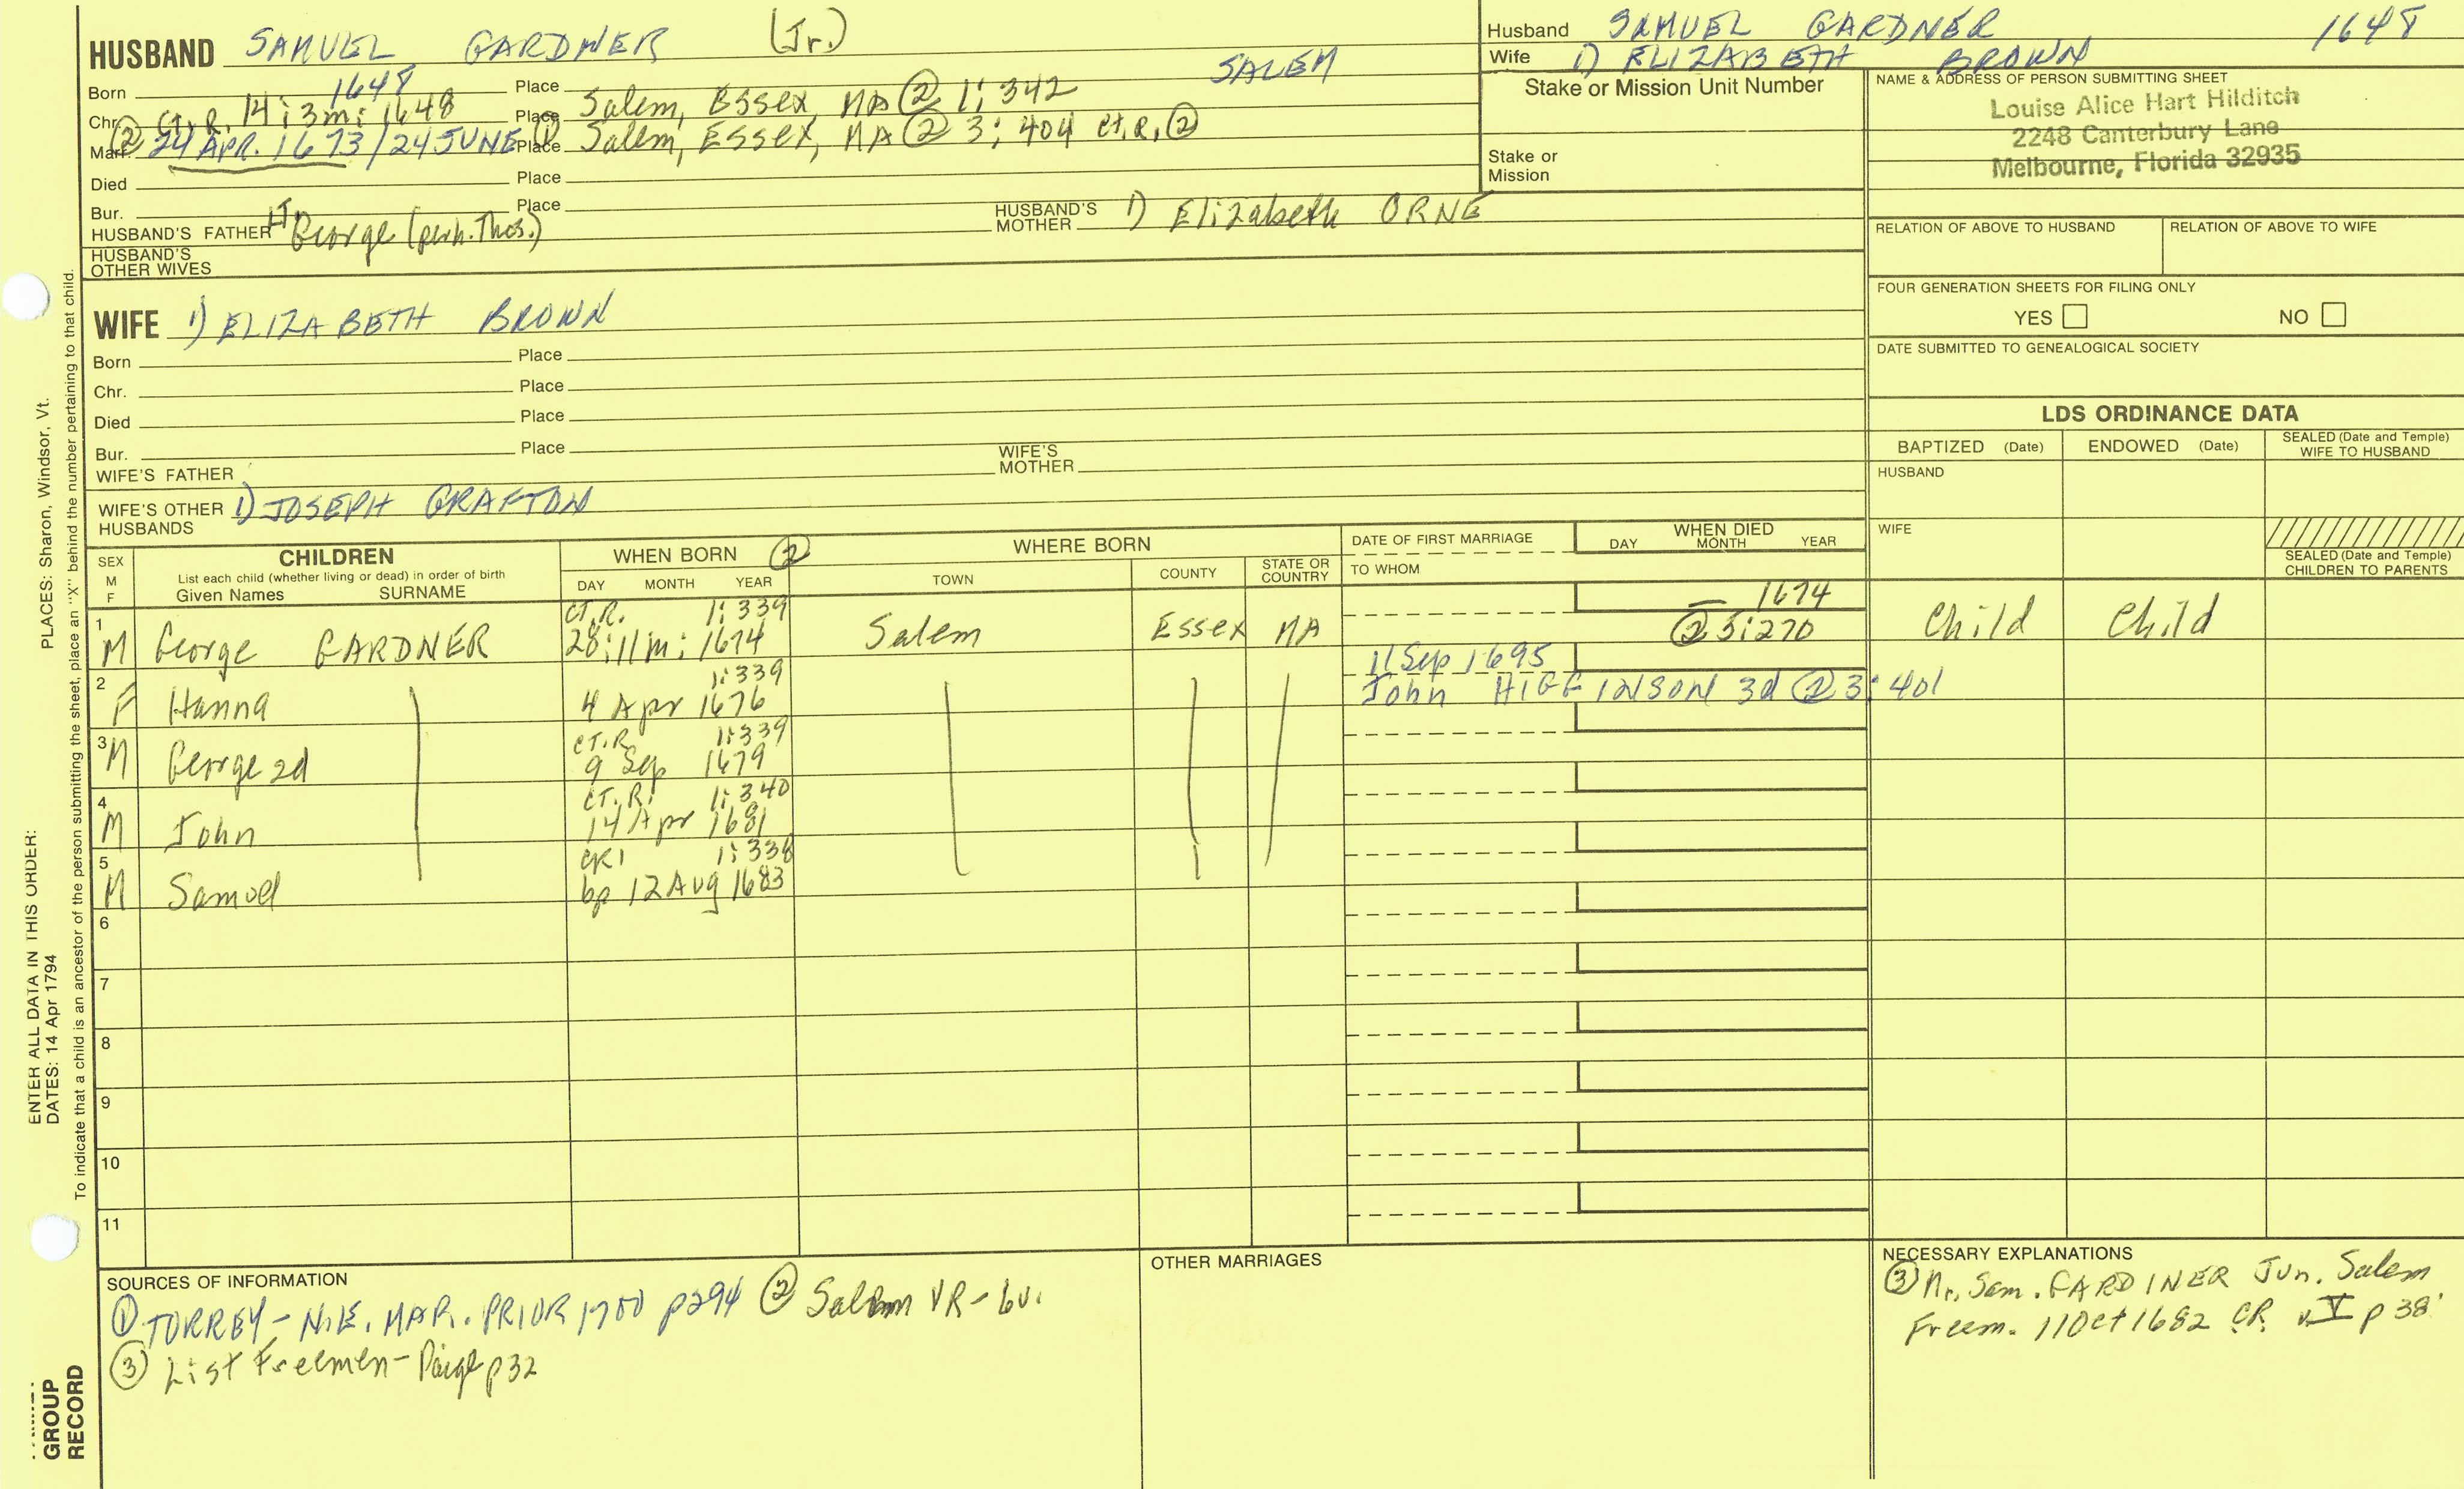 HUSBAND SAMUEL GARDNER (Jr.)
SALEM
Born 1648 Place
Chr. Ct. R. 14:3m:1648 Place Salem, Essex, MA ② 1:342
Marr. ② 24 APR. 1673/24 JUNE ① Place Salem, Essex, MA ② 3:404 Ct. R. ②
Died Place
Bur. Place
HUSBAND'S FATHER LT. George (perh. Thos.) HUSBAND'S MOTHER 1) Elizabeth ORNE
HUSBAND'S OTHER WIVES
WIFE 1) ELIZABETH BROWN
Born Place
Chr. Place
Died Place
Bur. Place
WIFE'S FATHER WIFE'S MOTHER
WIFE'S OTHER HUSBANDS 1) JOSEPH GRAFTON
Husband SAMUEL GARDNER 1648
Wife 1) ELIZABETH BROWN
Stake or Mission Unit Number
Stake or Mission
NAME & ADDRESS OF PERSON SUBMITTING SHEET
Louise Alice Hart Hilditch
2248 Canterbury Lane
Melbourne, Florida 32935
RELATION OF ABOVE TO HUSBAND RELATION OF ABOVE TO WIFE
FOUR GENERATION SHEETS FOR FILING ONLY
YES NO
DATE SUBMITTED TO GENEALOGICAL SOCIETY
LDS ORDINANCE DATA
BAPTIZED (Date) ENDOWED (Date) SEALED (Date and Temple) WIFE TO HUSBAND
HUSBAND
WIFE
SEALED (Date and Temple) CHILDREN TO PARENTS
SEX M F
CHILDREN
List each child (whether living or dead) in order of birth
Given Names SURNAME
WHEN BORN ②
DAY MONTH YEAR
WHERE BORN
TOWN COUNTY STATE OR COUNTRY
DATE OF FIRST MARRIAGE
TO WHOM
WHEN DIED
DAY MONTH YEAR
1 CT.R. 1:339 — 1674
M George GARDNER 28:11m:1674 Salem Essex MA ② 5:270 Child Child
2 1:339 11 Sep 1695
F Hanna 4 Apr 1676 John HIGGINSON 3d ② 3:401
3 CT.R 1:339
M George 2d 9 Sep 1679
4 CT.R. 1:340
M John 14 Apr 1681
5 CR1 1:338
M Samuel bp 12 Aug 1683
6
7
8
9
10
11
SOURCES OF INFORMATION
① TORREY - N.E. MAR. PRIOR 1700 p294 ② Salem VR - 6v.
③ List Freemen - Paige p32
OTHER MARRIAGES
NECESSARY EXPLANATIONS
③ Mr. Sam. GARDINER Jun. Salem
Freem. 11 Oct 1682 CR v.V p 38
ENTER ALL DATA IN THIS ORDER:
DATES: 14 Apr 1794
PLACES: Sharon, Windsor, Vt.
To indicate that a child is an ancestor of the person submitting the sheet, place an "X" behind the number pertaining to that child.
GROUP
RECORD